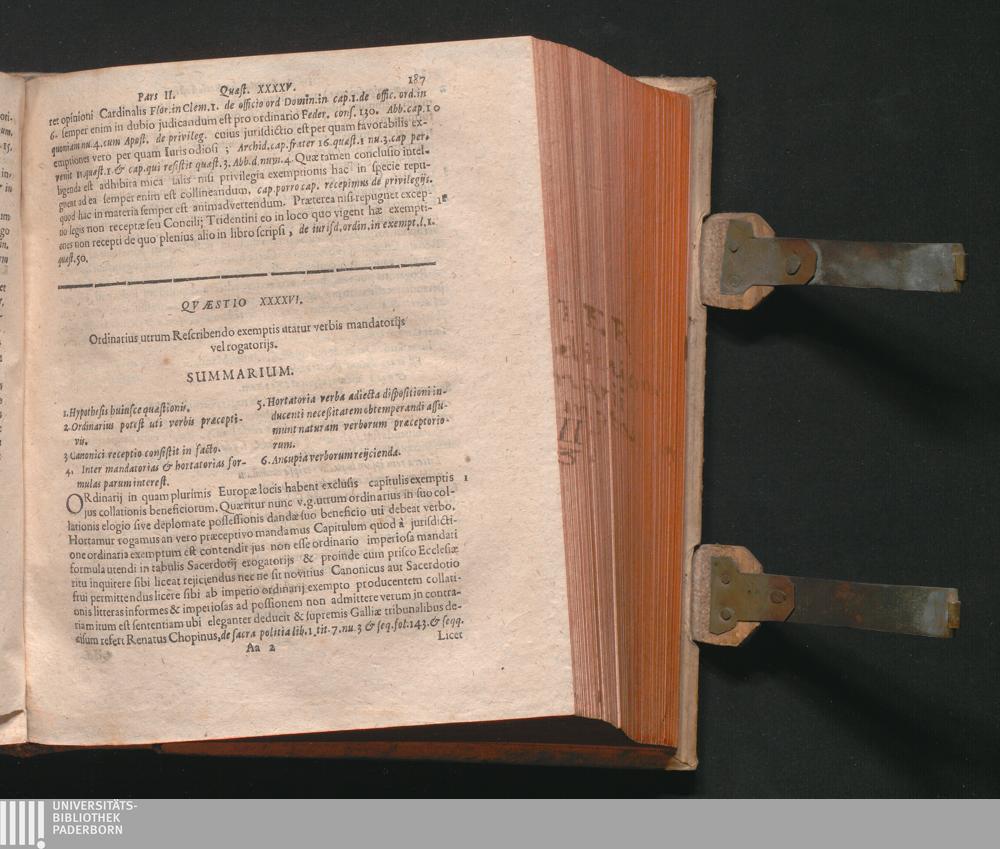 Pars II. Quæst. XXXXV. 187
ret opinioni Cardinalis Flor.in Clem.1. de officio ord Domin.in cap.1.de offic. ord.in
6. semper enim in dubio judicandum est pro ordinario Feder. cons. 130. Abb.cap. 10
quoniam nu.4.cum Apost. de privileg. cuius jurisdictio est per quam favorabilis ex-
emptiones vero per quam Iuris odiosi ; Archid.cap.frater 16.quæst.1 nu.3.cap per.
venit 11.quæst.1.& cap.qui resistit quæst.3.Abb.d.num.4. Quæ tamen conclusio intel-
ligenda est adhibita mica salis nisi privilegia exemptionis hac in specie repu-
gnent ad ea semper enim est collineandum, cap.porro cap. recepimus de privilegijs.
quod hac in materia semper est animadvertendum. Præterea nisi repugnet excep-
tio legis non receptæ seu Concilij Tridentini eo in loco quo vigent hæ exempti-
ones non recepti de quo plenius alio in libro scripsi, de iurisd.ordin.in exempt.l.1.
quæst.50.
QVÆSTIO XXXXVI.
Ordinarius utrum Rescribendo exemptis utatur verbis mandatorijs
vel rogatorijs.
SUMMARIUM.
1.Hypothesis huiusce quæstionis.
2.Ordinarius potest uti verbis præcepti-
vis.
3 Canonici receptio consistit in facto.
4. Inter mandatorias & hortatorias for-
mulas parum interest.
5. Hortatoria verba adiecta dispositioni in-
ducenti necessitatem obtemperandi assu-
munt naturam verborum præceptorio-
rum.
6. Aucupia verborum reijcienda.
ORdinarij in quam plurimis Europæ locis habent exclusis capitulis exemptis 1
jus collationis beneficiorum. Quæritur nunc v.g. utrum ordinarius in suo col-
lationis elogio sive deplomate possessionis dandæ suo beneficio uti debeat verbo.
Hortamur rogamus an vero præceptivo mandamus Capitulum quod à jurisdicti-
one ordinaria exemptum est contendit jus non esse ordinario imperiosa mandati
formula utendi in tabulis Sacerdotij erogatorijs & proinde cum prisco Ecclesiæ
ritu inquirere sibi liceat rejiciendus nec ne sit novitius Canonicus aut Sacerdotio
frui permittendus licere sibi ab imperio ordinarij exempto producentem collati-
onis litteras informes & imperiosas ad possionem non admittere verum in contra-
riam itum est sententiam ubi eleganter deducit & supremis Galliæ tribunalibus de-
cisum refert Renatus Chopinus, de sacra politia lib.1.tit.7.nu.3 & seq.fol:143.& seqq.
Licet
Aa 2
UNIVERSITÄTS-
BIBLIOTHEK
PADERBORN